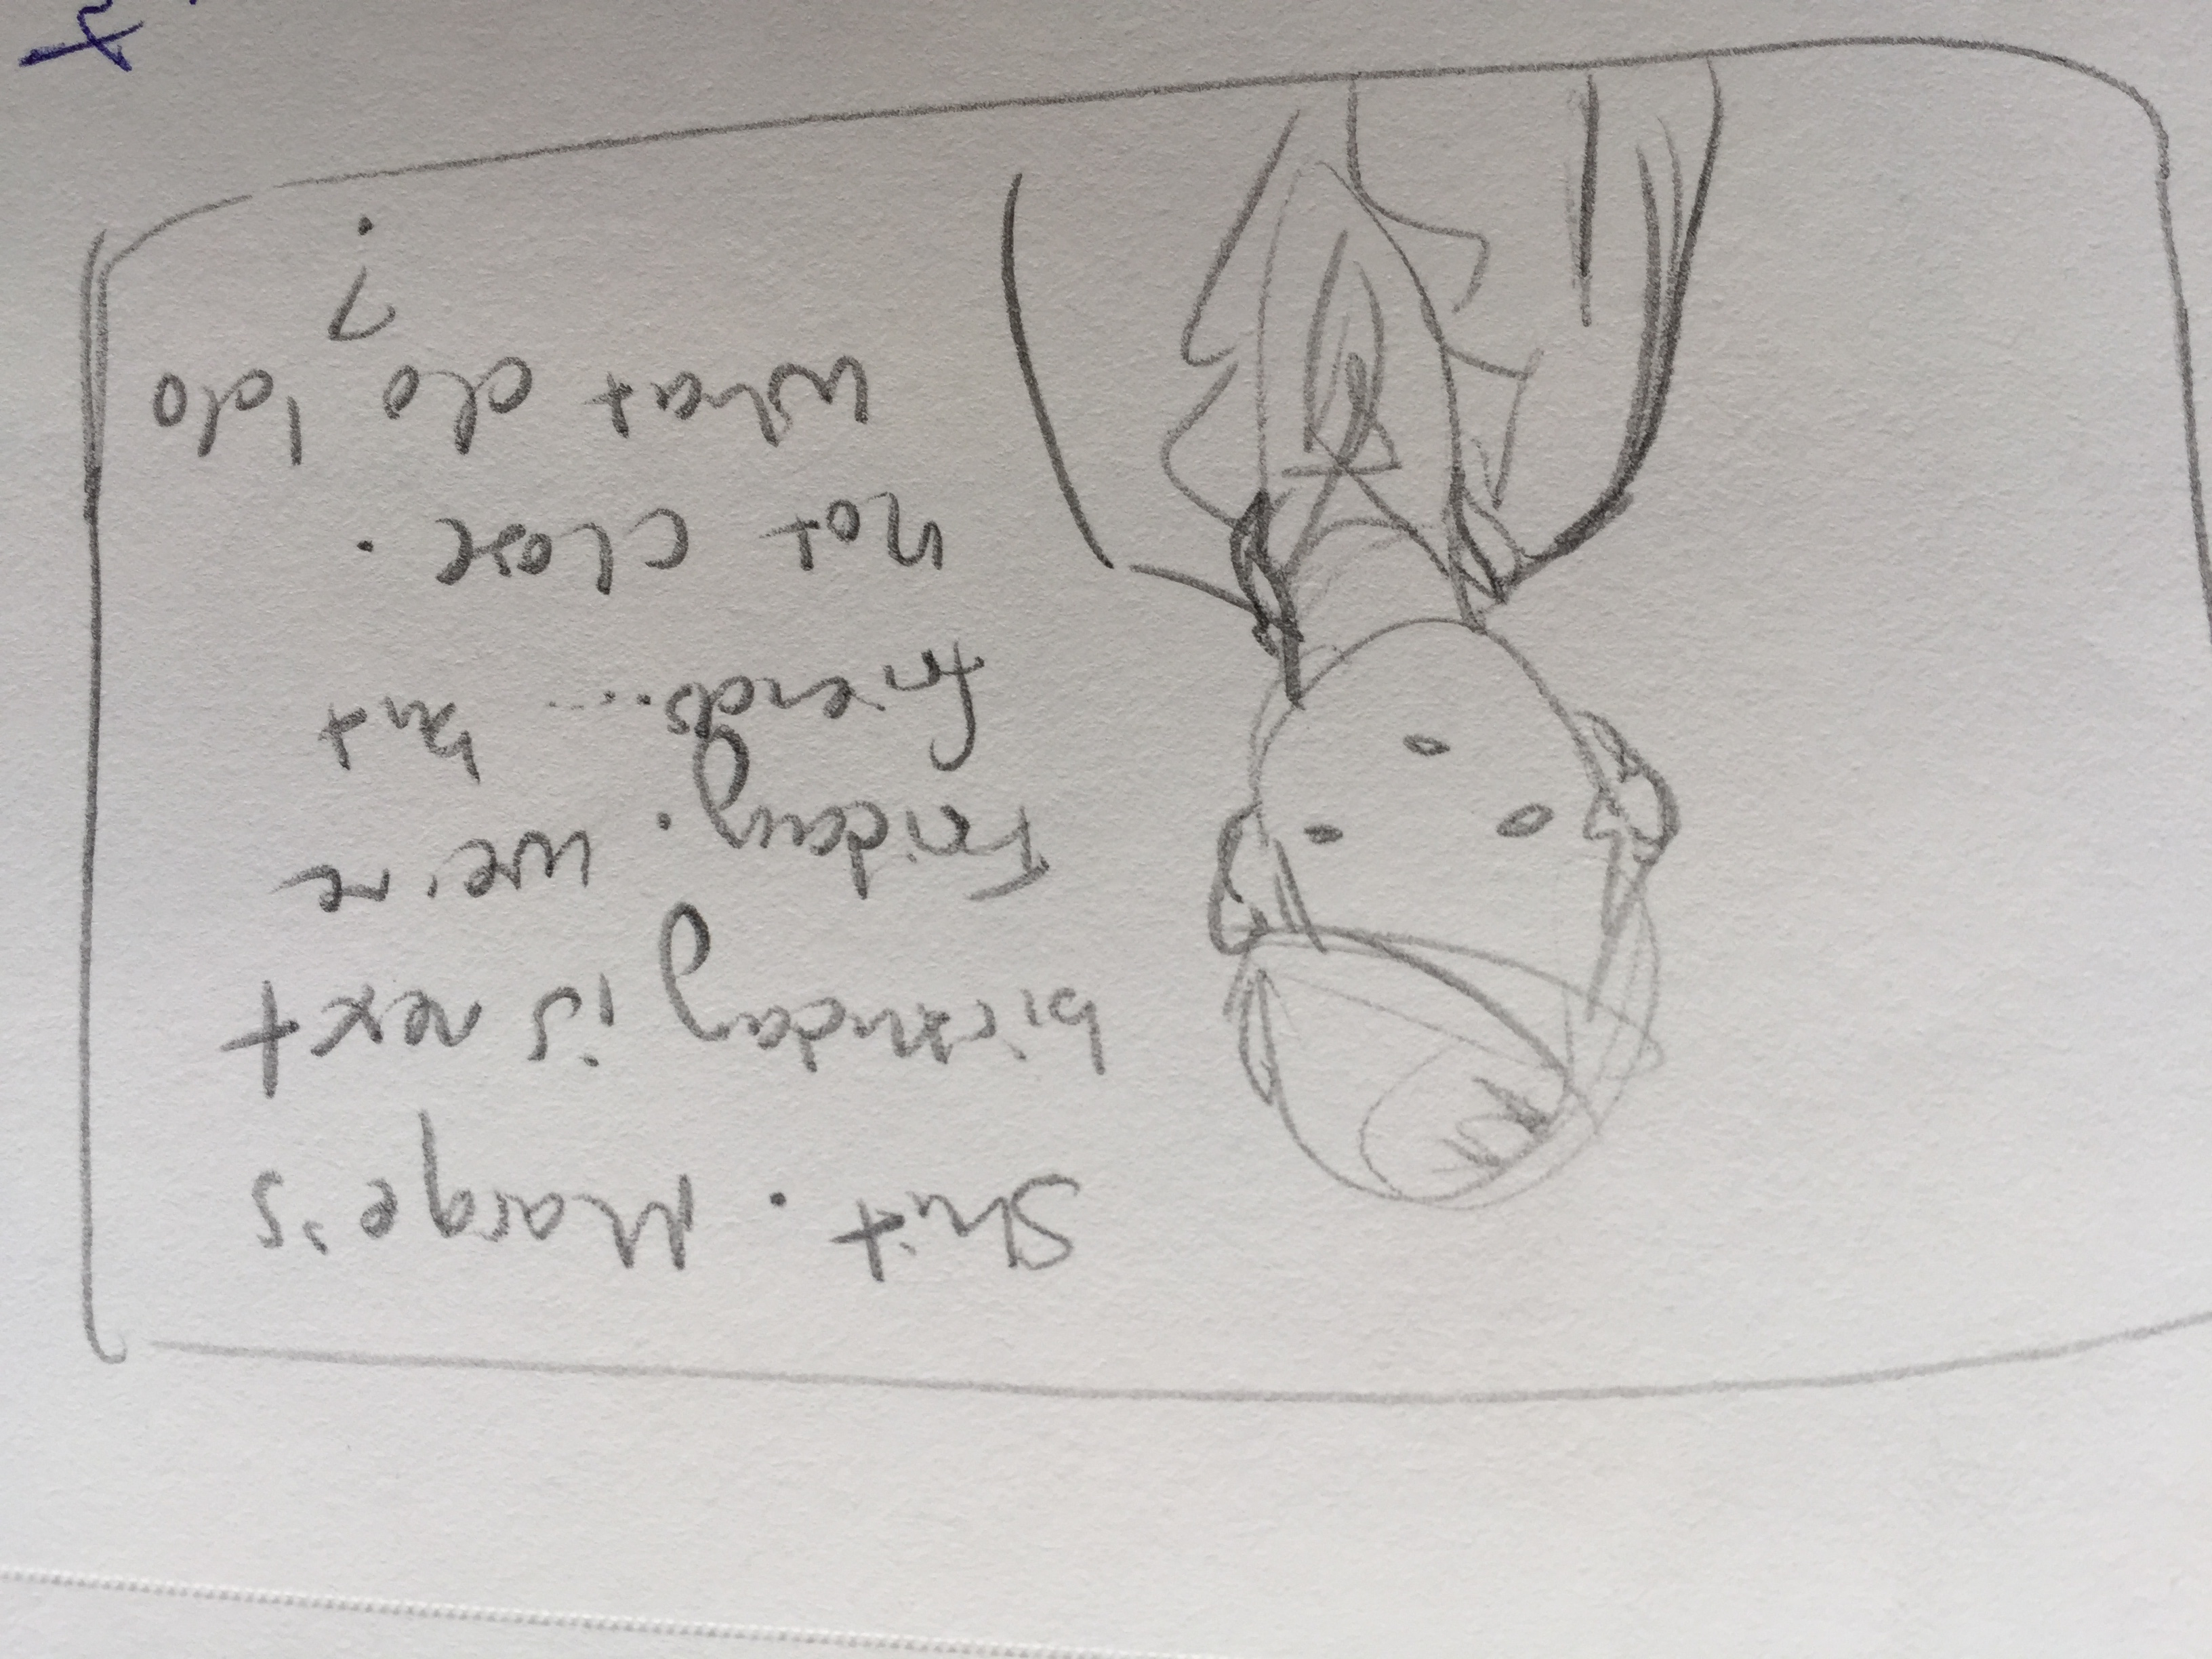 Shit. Marge's
birthday is next
Friday. We're
friends... but
not close.
What do I do
?